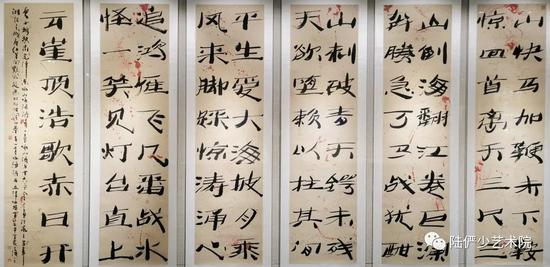 山快马加鞭未下鞍
惊回首离天三尺三
山倒海翻江卷巨澜
奔腾急万马战犹酣
山刺破青天锷未残
天欲堕赖以拄其间
平生爱大海披月乘
风来脚踩惊涛涌心
追鸿雁飞几番战水
怪一笑见灯台直上
云崖顶浩歌赤日升
陆俨少艺术院